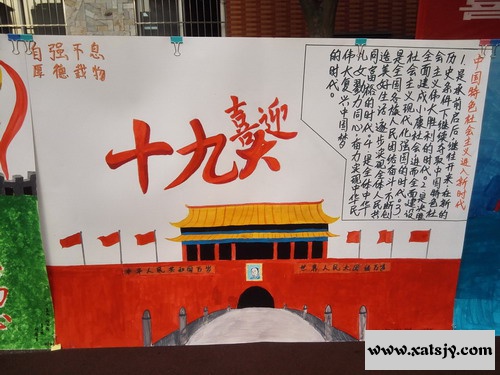 自强不息
厚德载物
喜迎
十九大
中国特色社会主义进入新时代
1.是承前启后继往开来在新的
历史条件下继续夺取中国特色社
会主义伟大胜利的时代。2.是决胜
全面建成小康社会进而全面建设
社会主义现代化强国的时代。3.
是全国各族人民团结奋斗不断创
造美好生活逐步实现全体人民共
同富裕的时代。4.是全体中华
儿女戮力同心奋力实现中华民
族伟大复兴中国梦
的时代。
www.xatsjy.com